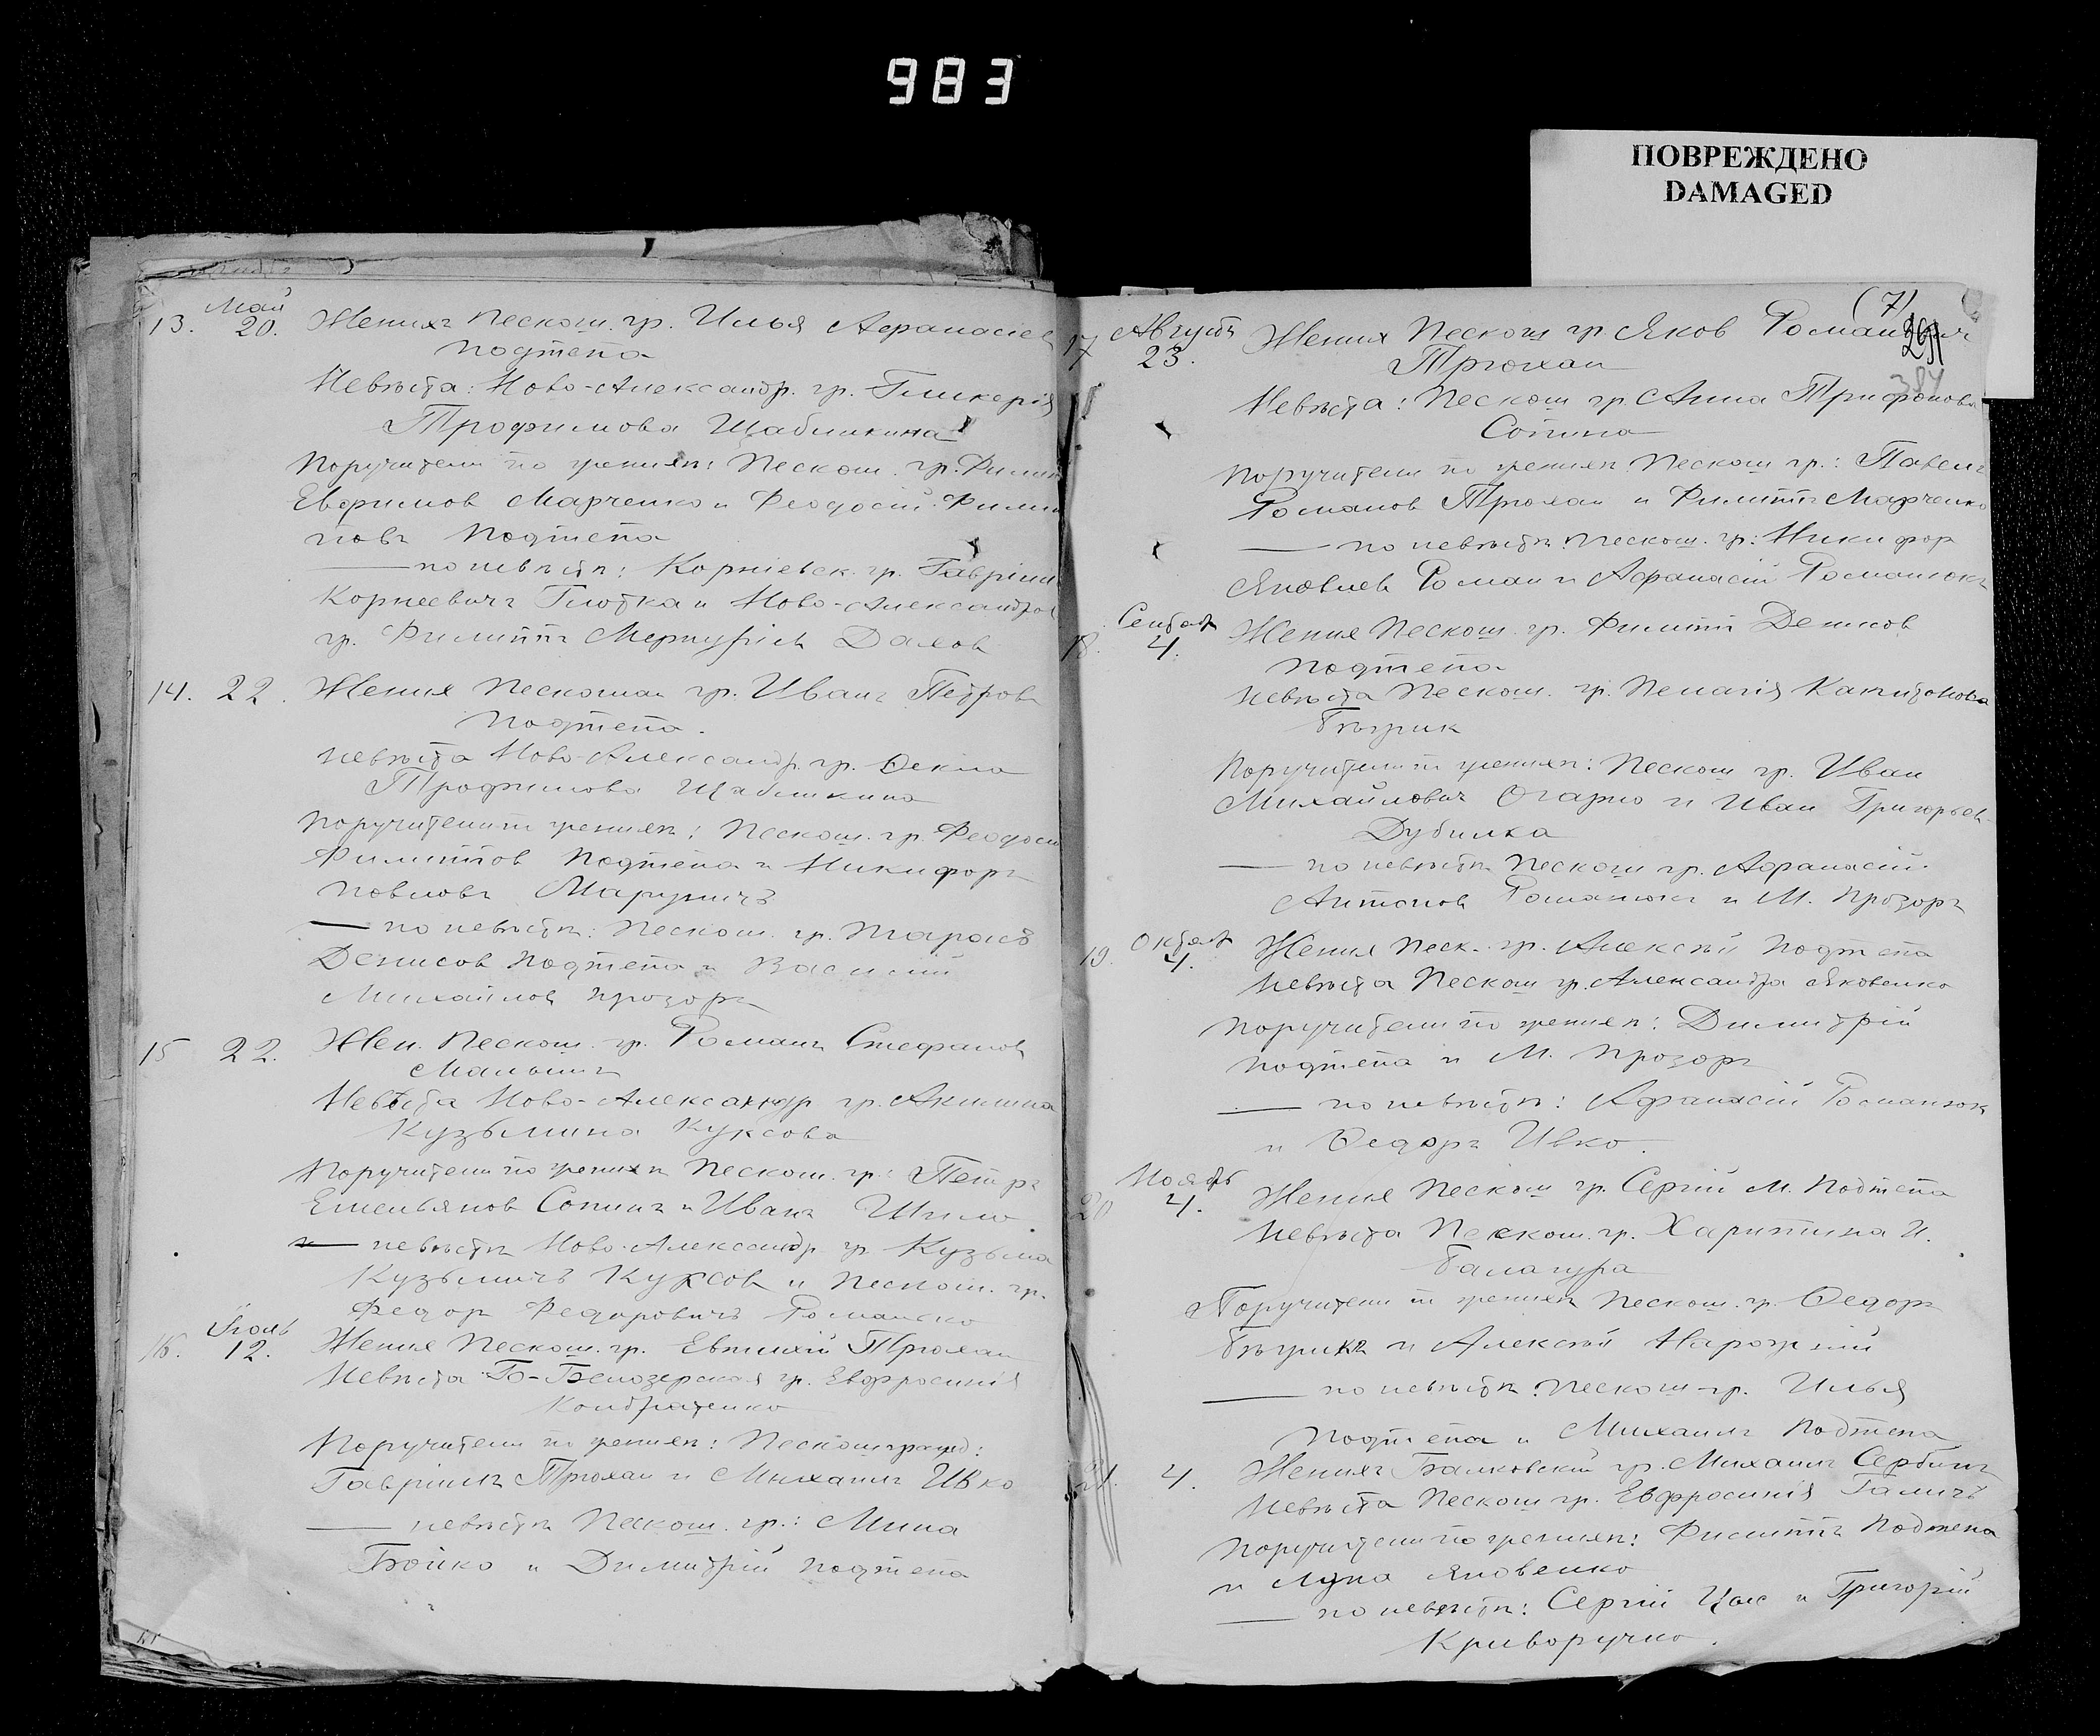 983
ПОВРЕЖДЕНО
DAMAGED
Май
13. 20. Женихъ Пескош. гр. Илья Афанасіев
Подтепа
Невѣста: Ново-Александр. гр. Гликерія
Трофимова Щаблыкина
Поручители по женихѣ: Пескош. гр. Филип
Евфимов Марченко и Феодосій Филип
повъ Подтепа
— по невѣстѣ: Корніевск. гр. Гавріил
Корнеевичъ Глотка и Ново-Александров
гр. Филиппъ Меркуріев Далов
14. 22. Жених Пескошан гр. Иванъ Петровъ
Подтепа.
невѣста Ново-Александр. гр. Ѳекла
Трофимова Щаблыкина
Поручители по женихѣ: Пескош. гр. Феодосій
Филиппов Подтепа и Никифоръ
Павловъ
— по невѣстѣ: Пескош. гр. Тарасъ
Денисов Подтепа и Василий
Михайлов Прозоръ
15 22. Жен. Пескош. гр. Романъ Стефанов
Невѣста Ново-Александр гр. Акилина
Кузьмина Куксова
Поручители по женихѣ Пескош. гр: Петръ
Емельянов Сопинъ и Иванъ Шило.
— невѣстѣ Ново-Александр. гр Кузьма
Кузьмичъ Куксов и Пескош. гр.
Федоръ Федоровичъ Романско
Іюль
16. 12. Жених Пескош. гр. Евтихій Трюхан
Невѣста Б-Белозерская гр. Евфросинія
Кондратенко
Поручители по женихѣ: Пескошгражд:
Гавріилъ Трюхан и Михаилъ Ивко
— невѣстѣ Пескош. гр.: Мина
Бойко и Димитрій Подтепа
(7)
291
384
17 Августъ 23. Жених Пескош гр. Яков Романович
Трюхан
Невѣста: Пескош гр. Анна Трифонова
Сопина
Поручители по женихѣ Пескош гр.: Павелъ
Романов Трюхан и Филиппъ Марченко
— по невѣстѣ: Пескош. гр: Никифор
Яковлев Роман и Афанасій Романюкъ
Сентябр
18. 4. Жених Пескош. гр. Филипп Денисов
Подтепа
невѣста Пескош. гр. Пелагія Капитонова
Бѣгрик
Поручители по женихѣ: Пескош гр. Иван
Михайлович Огарио и Иван Григорьев
Дубилка
— по невѣстѣ Пескош гр. Афанасій
Антонов Романюкъ и М. Прозоръ
Октябр
19. 4. Жених Песк. гр. Алексѣй Подтепа
Невѣста Пескош гр. Александра Яковенко
Поручители по женихѣ: Димитрій
Подтепа и М. Прозоръ
— по невѣстѣ: Афанасій Романюк
и Ѳедоръ Ивко.
Ноябрь
20 4. Жених Пескош гр. Сергій М. Подтепа
невѣста Пескош. гр. Харитина И.
Балагура
Поручители по женихѣ Пескош. гр. Ѳедоръ
Бѣгрикъ и Алексѣй Нарожній
— по невѣстѣ: Пескош-гр. Илья
Подтепа и Михаилъ Подтепа
21. 4. Женихъ Балковскій гр. Михаилъ Сербинъ
Невѣста Пескош гр. Евфросинія Галичъ
Поручители по женихѣ: Филиппъ Подтепа
и Лука Яковенко
— по невѣстѣ: Сергій Цис и Григорій
Криворучко.